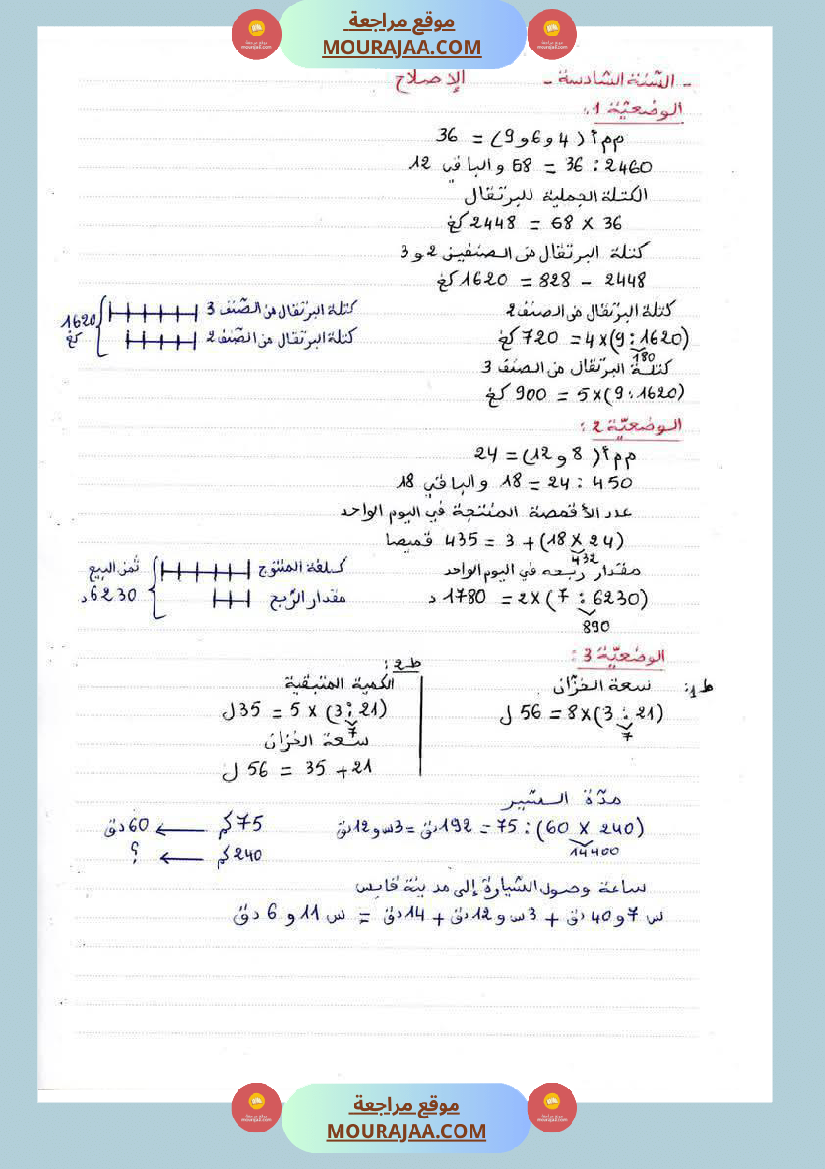 موقع مراجعة
MOURAJAA.COM
- السّنة السّادسة -
الإصلاح
الوضعيّة 1:
م م أ (4 و 6 و 9) = 36
2460 : 36 = 68 والباقي 12
الكتلة الجملية للبرتقال
36 X 68 = 2448 كغ
كتلة البرتقال من الصنفين 2 و 3
2448 - 828 = 1620 كغ
كتلة البرتقال من الصنف 2
(1620 : 9)x4 = 720 كغ
180
كتلة البرتقال من الصنف 3
(1620 : 9)x5 = 900 كغ
كتلة البرتقال من الصّنف 3
كتلة البرتقال من الصّنف 2
1620
كغ
الوضعيّة 2:
م م أ (8 و 12) = 24
450 : 24 = 18 والباقي 18
عدد الأقمصة المنتجة في اليوم الواحد
(24 X 18) + 3 = 435 قميصا
432
مقدار ربحه في اليوم الواحد
(6230 : 7) x2 = 1780 د
890
كلفة المنتوج
مقدار الرّبح
ثمن البيع
6230 د
الوضعيّة 3:
ط1:
سعة الخزّان
(21 : 3)x8 = 56 ل
7
ط2:
الكمية المتبقية
(21 : 3) x 5 = 35 ل
7
سعة الخزان
21 + 35 = 56 ل
مدّة السير
(240 X 60) : 75 = 192 دق = 3س و 12دق
14400
75 كم ← 60 دق
240 كم ← ؟
ساعة وصول السّيارة إلى مدينة قابس
س 7 و 40 دق + 3س و 12دق + 14دق = س 11 و 6 دق
موقع مراجعة
MOURAJAA.COM